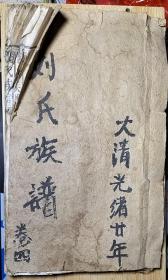 大清光緒廿年
刘氏族譜
卷四